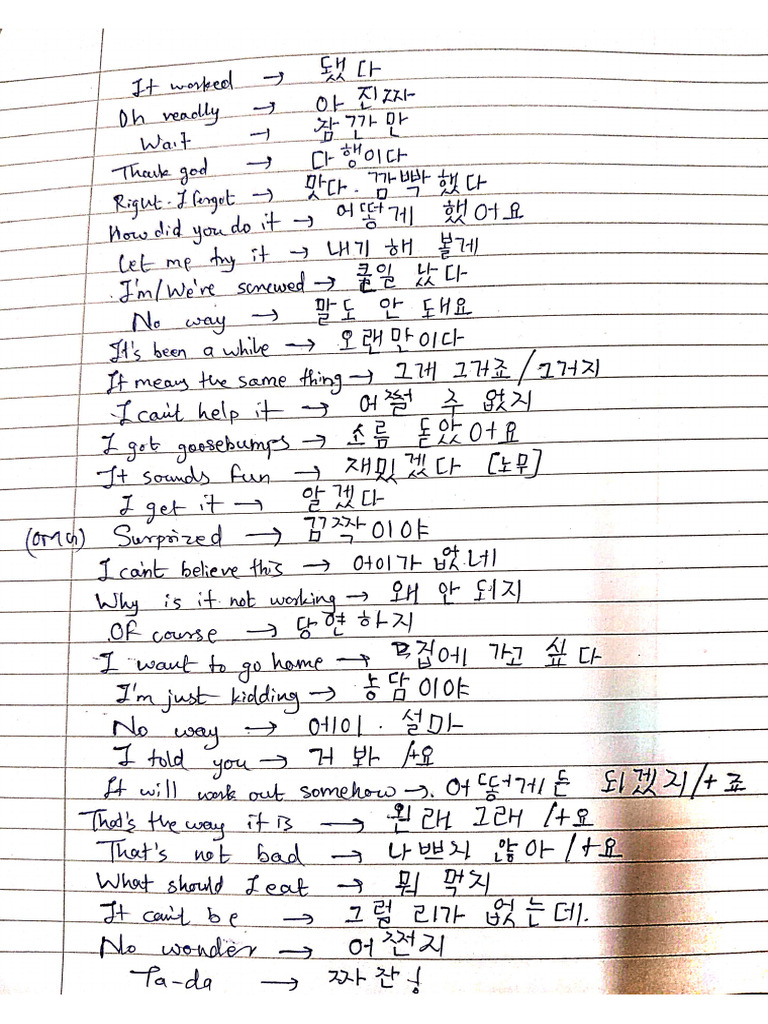 It worked → 됐다
Oh readly → 아 진짜
Wait → 잠깐만
Thank god → 다행이다
Right. I forgot → 맞다. 깜빡했다
How did you do it → 어떻게 했어요
Let me try it → 내기 해 볼게
I'm/We're screwed → 큰일 났다
No way → 말도 안 돼요
It's been a while → 오랜만이다
It means the same thing → 그게 그거죠/그거지
I can't help it → 어쩔 수 없지
I got goosebumps → 소름 돋았어요
It sounds fun → 재밌겠다 [노무]
I get it → 알겠다
(OMG) Surprized → 깜짝이야
I can't believe this → 어이가 없네
Why is it not working → 왜 안 되지
Of course → 당연하지
I want to go home → 집에 가고 싶다
I'm just kidding → 농담이야
No way → 에이. 설마
I told you → 거 봐 /+요
It will work out somehow →. 어떻게든 되겠지/+죠
That's the way it is → 원래 그래 /+요
That's not bad → 나쁘지 않아 /+요
What should I eat → 뭐 먹지
It can't be → 그럴 리가 없는데.
No wonder → 어쩐지
Ta-da → 짜잔!